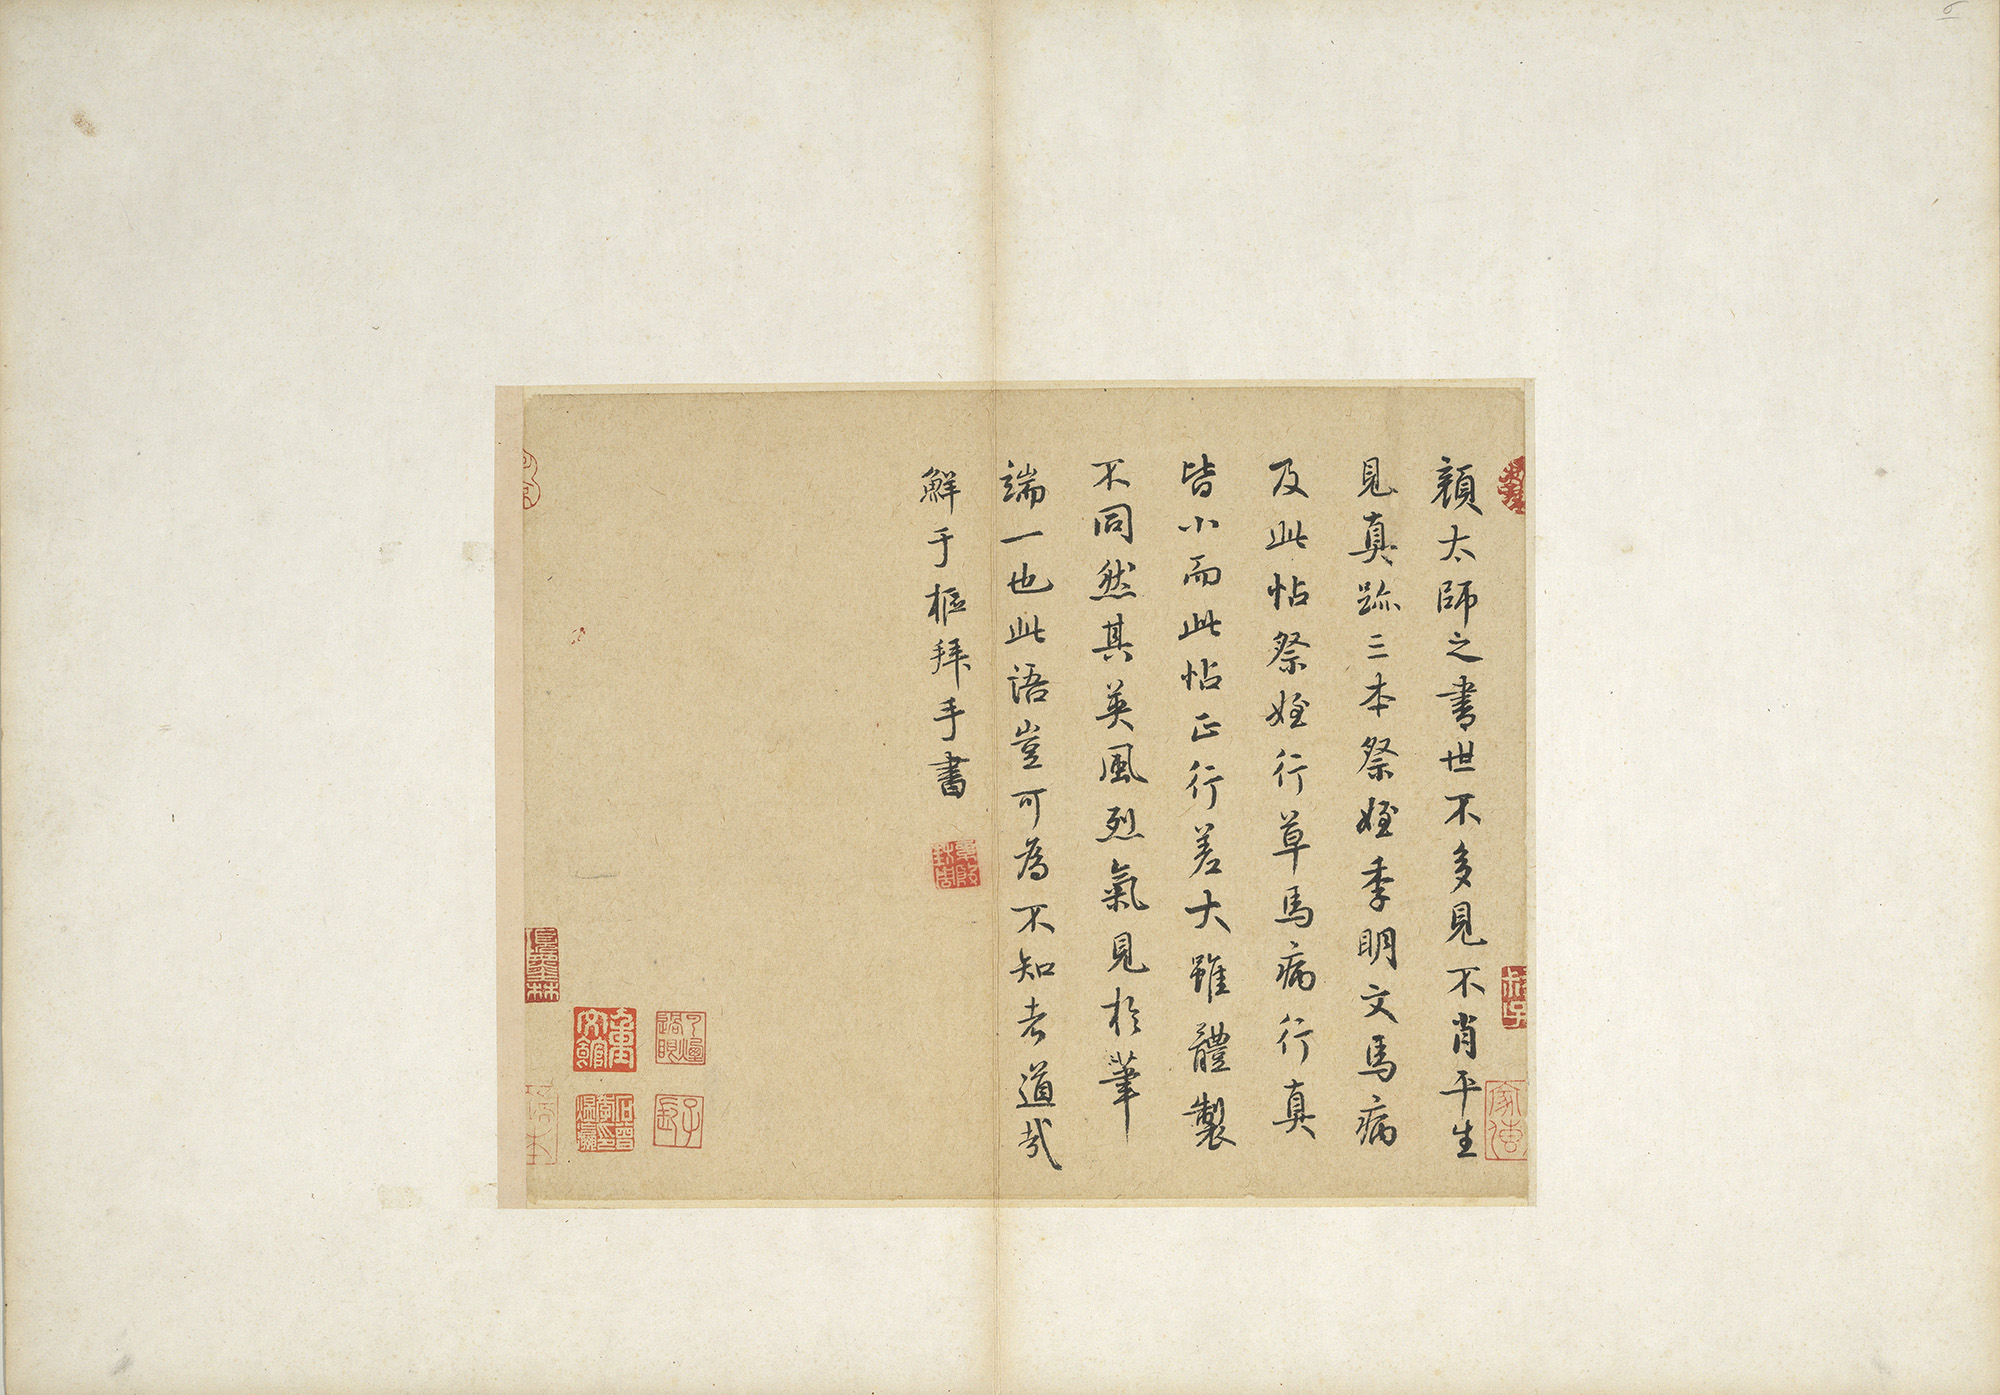 顏太師之書世不多見不肖平生
見真跡三本祭姪季明文馬病
及此帖祭姪行草馬病行真
皆小而此帖正行差大雖體製
不同然其英風烈氣見於筆
端一也此語豈可為不知者道哉
鮮于樞拜手書